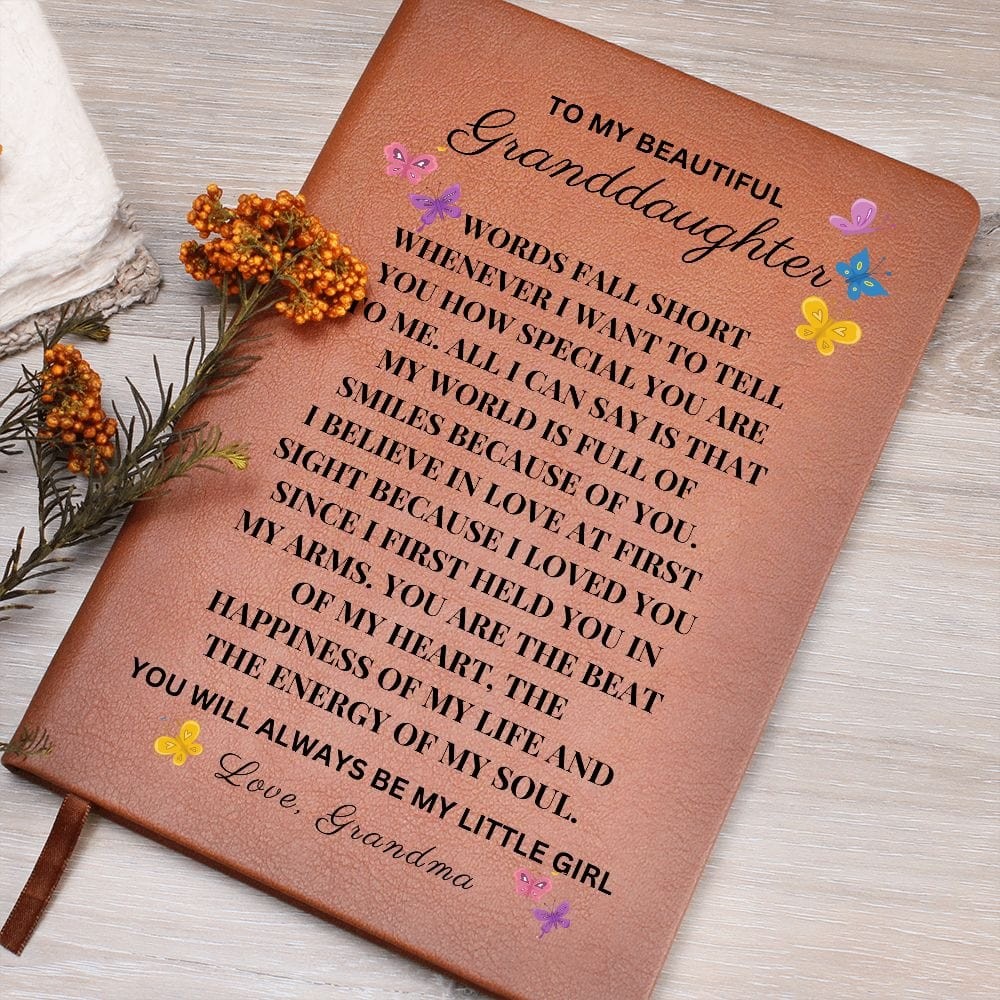 TO MY BEAUTIFUL
Granddaughter
WORDS FALL SHORT
WHENEVER I WANT TO TELL
YOU HOW SPECIAL YOU ARE
TO ME. ALL I CAN SAY IS THAT
MY WORLD IS FULL OF
SMILES BECAUSE OF YOU.
I BELIEVE IN LOVE AT FIRST
SIGHT BECAUSE I LOVED YOU
SINCE I FIRST HELD YOU IN
MY ARMS. YOU ARE THE BEAT
OF MY HEART, THE
HAPPINESS OF MY LIFE AND
THE ENERGY OF MY SOUL.
YOU WILL ALWAYS BE MY LITTLE GIRL
Love, Grandma